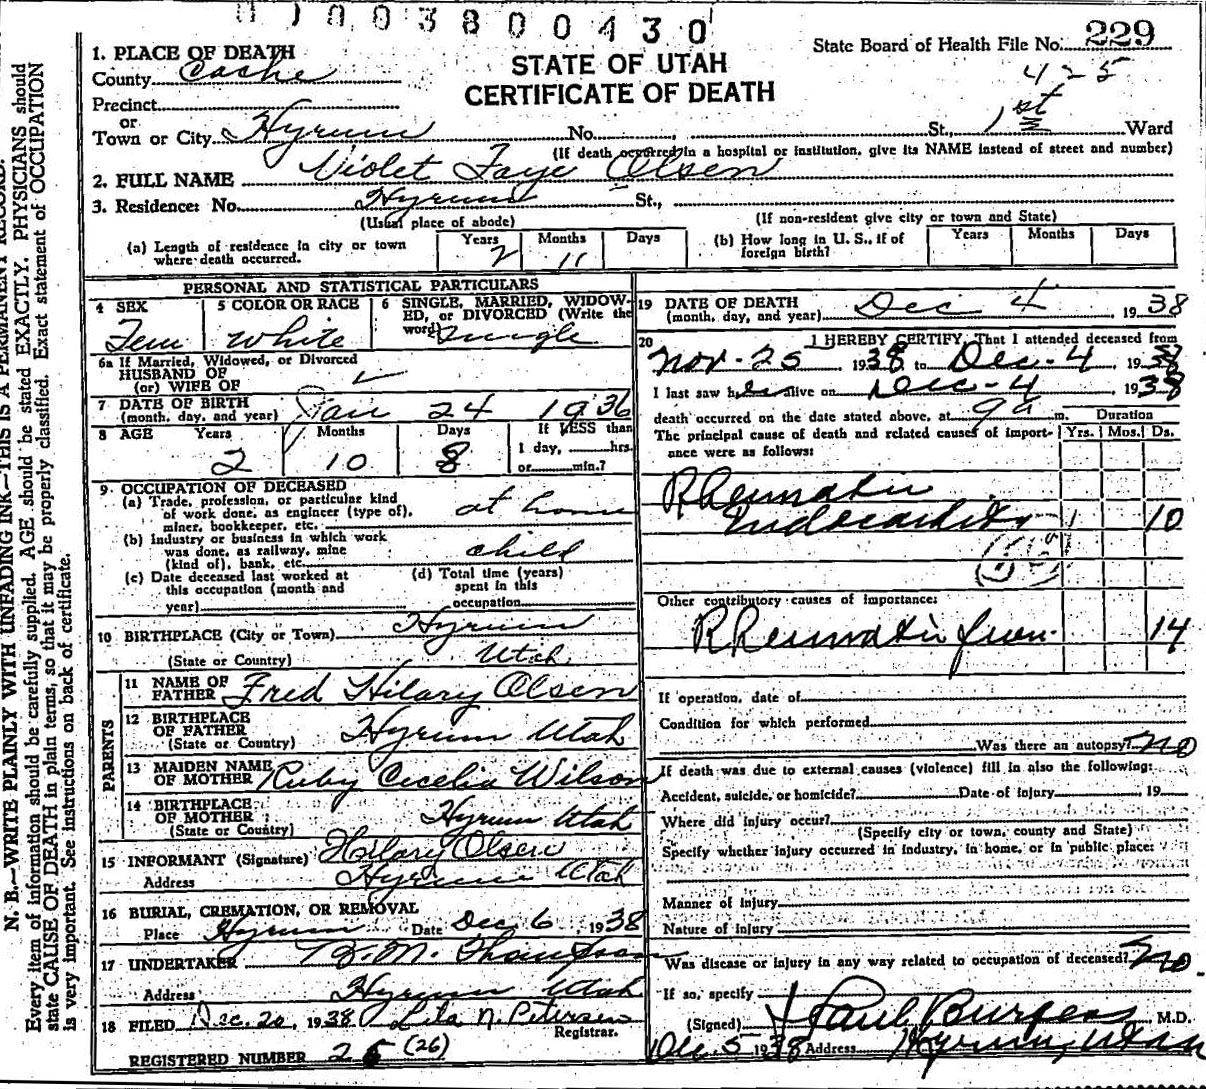 003800430
State Board of Health File No. 229
425
1. PLACE OF DEATH
STATE OF UTAH
CERTIFICATE OF DEATH
County Cache
Precinct
or
Town or City Hyrum No. , St., 1st Ward
(If death occurred in a hospital or institution, give its NAME instead of street and number)
2. FULL NAME Violet Faye Olsen
3. Residence: No. Hyrum St.,
(Usual place of abode) (If non-resident give city or town and State)
(a) Length of residence in city or town where death occurred. Years 2 Months 11 Days
(b) How long in U. S., if of foreign birth? Years Months Days
PERSONAL AND STATISTICAL PARTICULARS
4 SEX Fem
5 COLOR OR RACE White
6 SINGLE, MARRIED, WIDOWED, or DIVORCED (Write the word) Single
6a If Married, Widowed, or Divorced
HUSBAND OF
(or) WIFE OF
7 DATE OF BIRTH (month, day, and year) Jan 24 1936
8 AGE Years 2 Months 10 Days 8 If LESS than 1 day, hrs. or min.?
9 OCCUPATION OF DECEASED
(a) Trade, profession, or particular kind
of work done, as engineer (type of),
miner, bookkeeper, etc. at home
(b) Industry or business in which work
was done, as railway, mine
(kind of), bank, etc. child
(c) Date deceased last worked at this occupation (month and year)
(d) Total time (years) spent in this occupation
10 BIRTHPLACE (City or Town) Hyrum
(State or Country) Utah
PARENTS
11 NAME OF FATHER Fred Hilary Olsen
12 BIRTHPLACE OF FATHER (State or Country) Hyrum Utah
13 MAIDEN NAME OF MOTHER Ruby Cecelia Wilson
14 BIRTHPLACE OF MOTHER (State or Country) Hyrum Utah
15 INFORMANT (Signature) Hilary Olsen
Address Hyrum Utah
16 BURIAL, CREMATION, OR REMOVAL
Place Hyrum Date Dec 6, 1938
17 UNDERTAKER
Address Hyrum Utah
18 FILED Dec. 20, 1938 Lila N. Petersen
Registrar.
REGISTERED NUMBER 25 (26)
19 DATE OF DEATH (month, day, and year) Dec 4 1938
20 I HEREBY CERTIFY, That I attended deceased from
Nov - 25 1938 to Dec - 4, 1938
I last saw her alive on Dec - 4 1938
death occurred on the date stated above, at 9 a m. Duration
The principal cause of death and related causes of importance were as follows: Yrs. Mos. Ds.
Rheumatic
Endocarditis 10
Other contributory causes of importance:
Rheumatic fever 14
If operation, date of
Condition for which performed
Was there an autopsy? No
If death was due to external causes (violence) fill in also the following:
Accident, suicide, or homicide? Date of injury 19
Where did injury occur?
(Specify city or town, county and State)
Specify whether injury occurred in industry, in home, or in public place:
Manner of injury
Nature of injury
Was disease or injury in any way related to occupation of deceased? No.
If so, specify
(Signed) J Paul Burgess M.D.
Dec. 5 1938 Address Hyrum, Utah
N. B.—WRITE PLAINLY WITH UNFADING INK—THIS IS A PERMANENT RECORD.
Every item of information should be carefully supplied. AGE should be stated EXACTLY. PHYSICIANS should
state CAUSE OF DEATH in plain terms, so that it may be properly classified. Exact statement of OCCUPATION
is very important. See instructions on back of certificate.